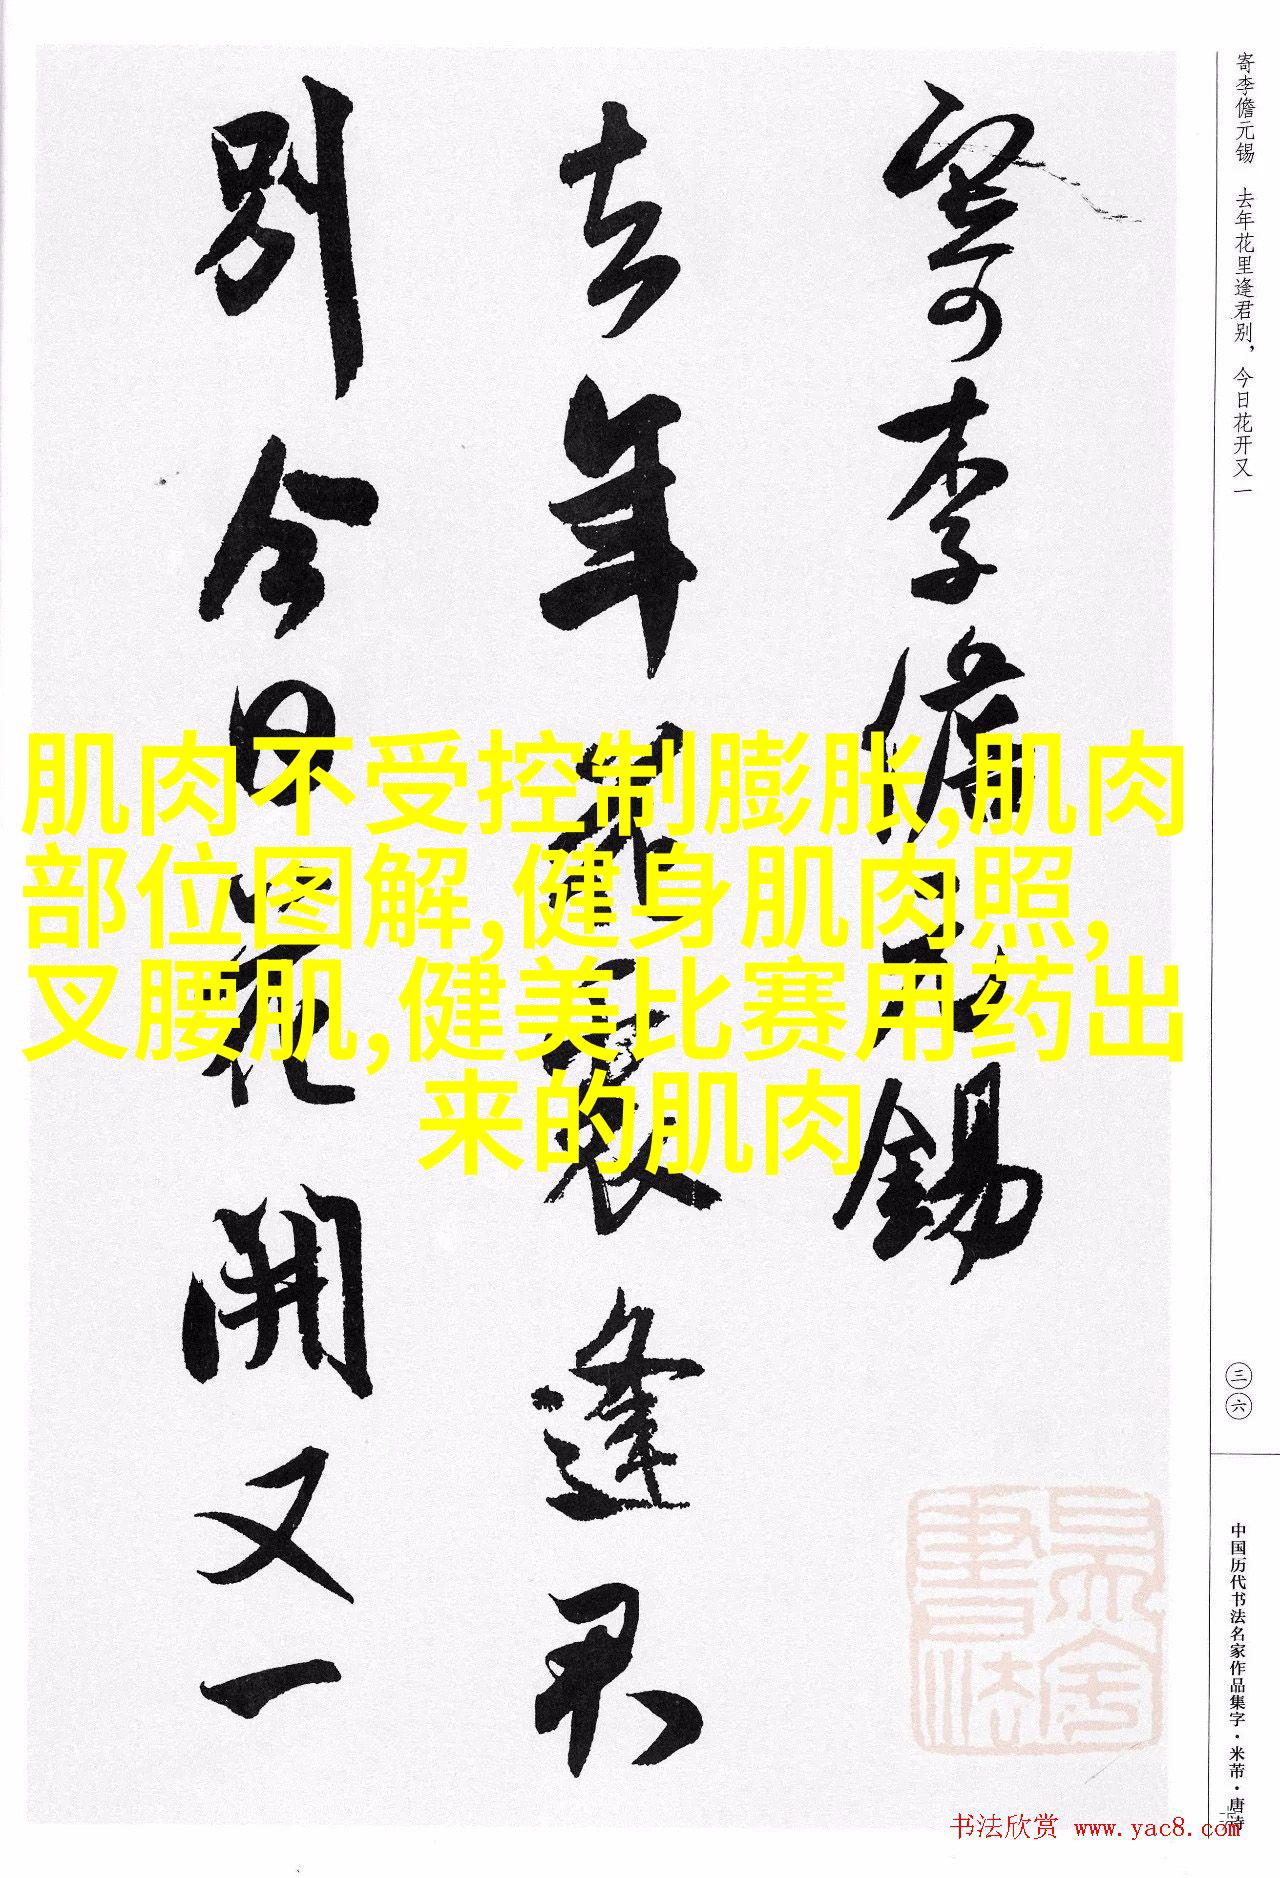 寄李儋元锡　去年花里逢君别，今日花开又一
三六
中国历代书法名家作品集字·米芾·唐诗
寄李儋元錫
去年花裏逢君
别今日花開又一
肌肉不受控制膨胀,肌肉
部位图解,健身肌肉照,
叉腰肌,健美比赛用药出
来的肌肉
书法欣赏 www.yac8.com